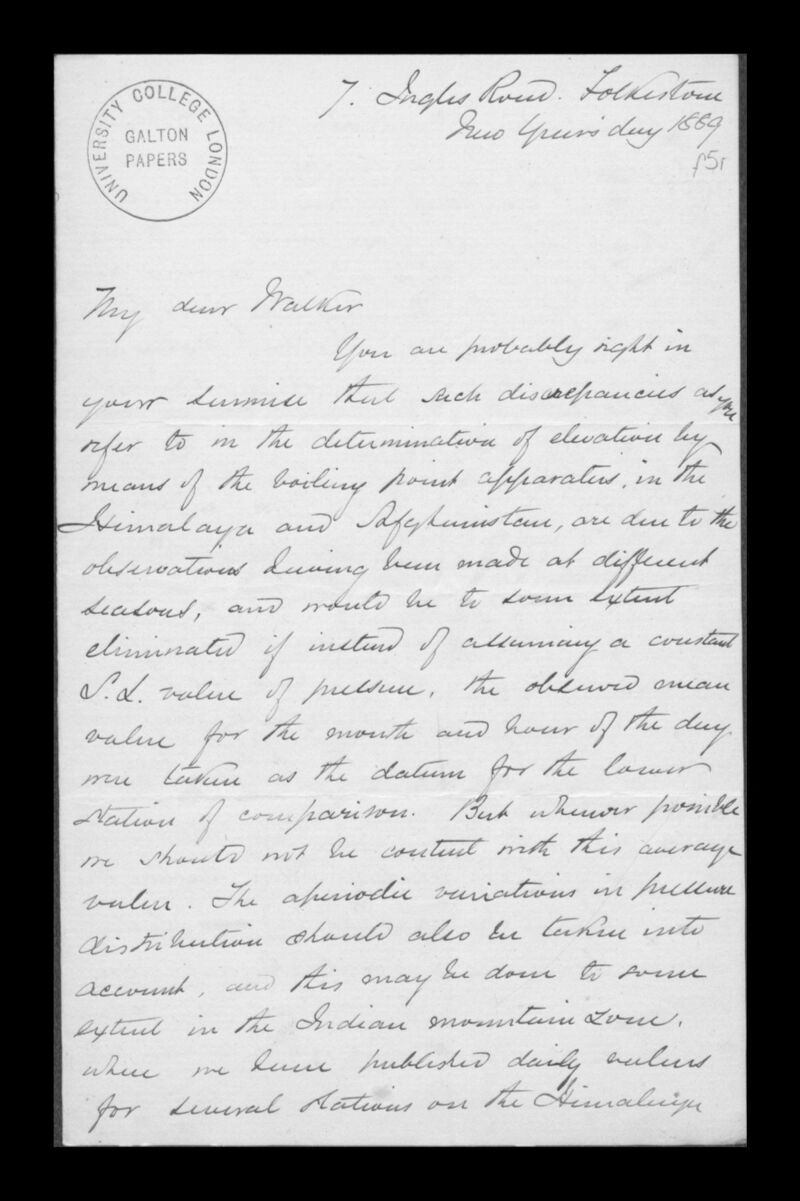 UNIVERSITY COLLEGE LONDON
GALTON
PAPERS
7. Ingles Road. Folkestone
New Year's day 1889
f5r
My dear Walker
You are probably right in
your surmise that such discrepancies as you
refer to in the determination of elevation by
means of the boiling point apparatus, in the
Himalaya and Afghanistan, are due to the
observations having been made at different
seasons, and would be to some extent
eliminated if instead of assuming a constant
S.L. value of pressure, the observed mean
value for the month and hour of the day
were taken as the datum for the lower
station of comparison. But whenever possible
we should not be content with this average
value. The aperiodic variations in pressure
distribution should also be taken into
account, and this may be done to some
extent in the Indian mountain zone,
where we have published daily values
for several stations on the Himalaya